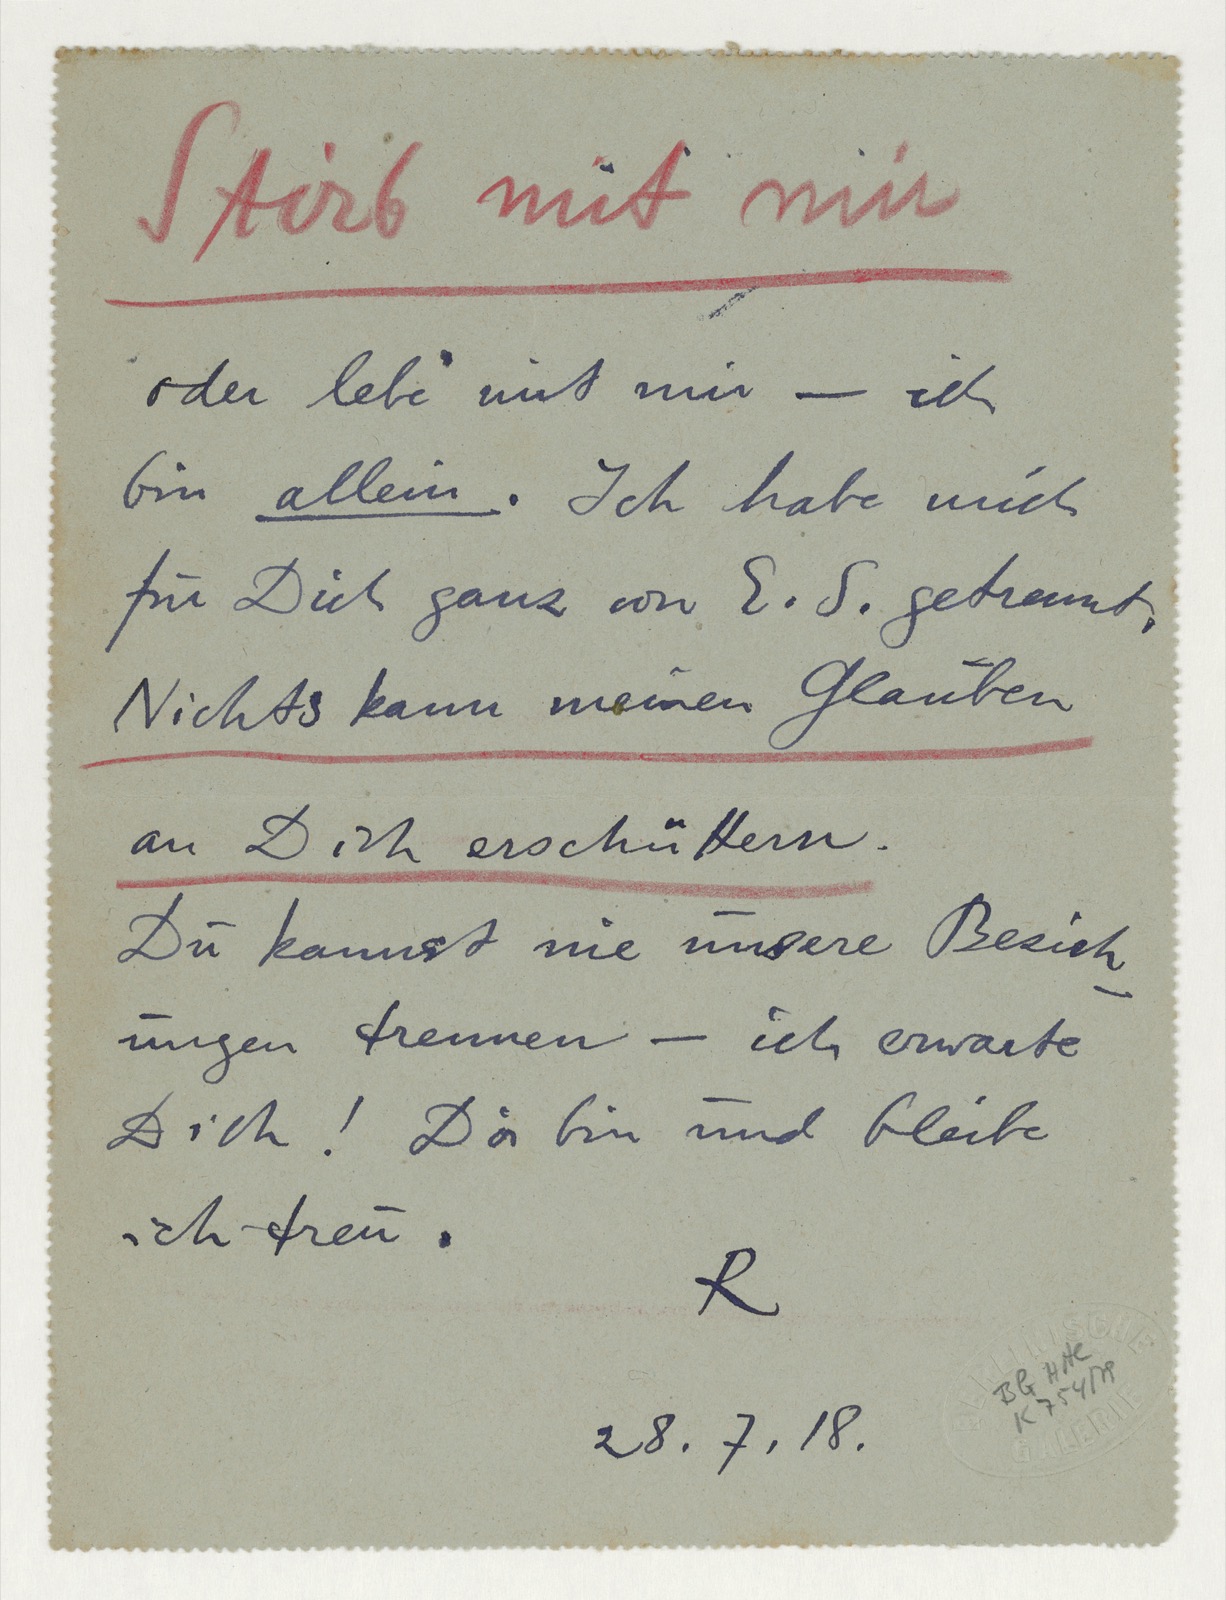 Stirb mit mir
oder lebe mit mir — ich
bin allein. Ich habe mich
für Dich ganz von E. S. getrennt.
Nichts kann meinen Glauben
an Dich erschüttern.
Du kannst nie unsere Bezieh-
ungen trennen — ich erwarte
Dich! Da bin und bleibe
ich treu.
R
28. 7. 18.
BERLINISCHE
GALERIE
BG HHC
K 754/79